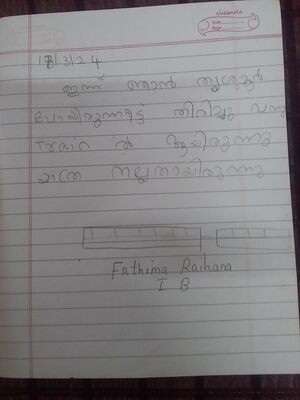 classmate
Date
Page
18/3/24
ഇന്ന് ഞാൻ തൃശൂർ
പോയിരുന്നുട്ട് തിരിച്ചു വന്നു
Train ൽ ആയിരുന്നു
യാത്ര നല്ലതായിരുന്നു
Fathima Raihana
I B